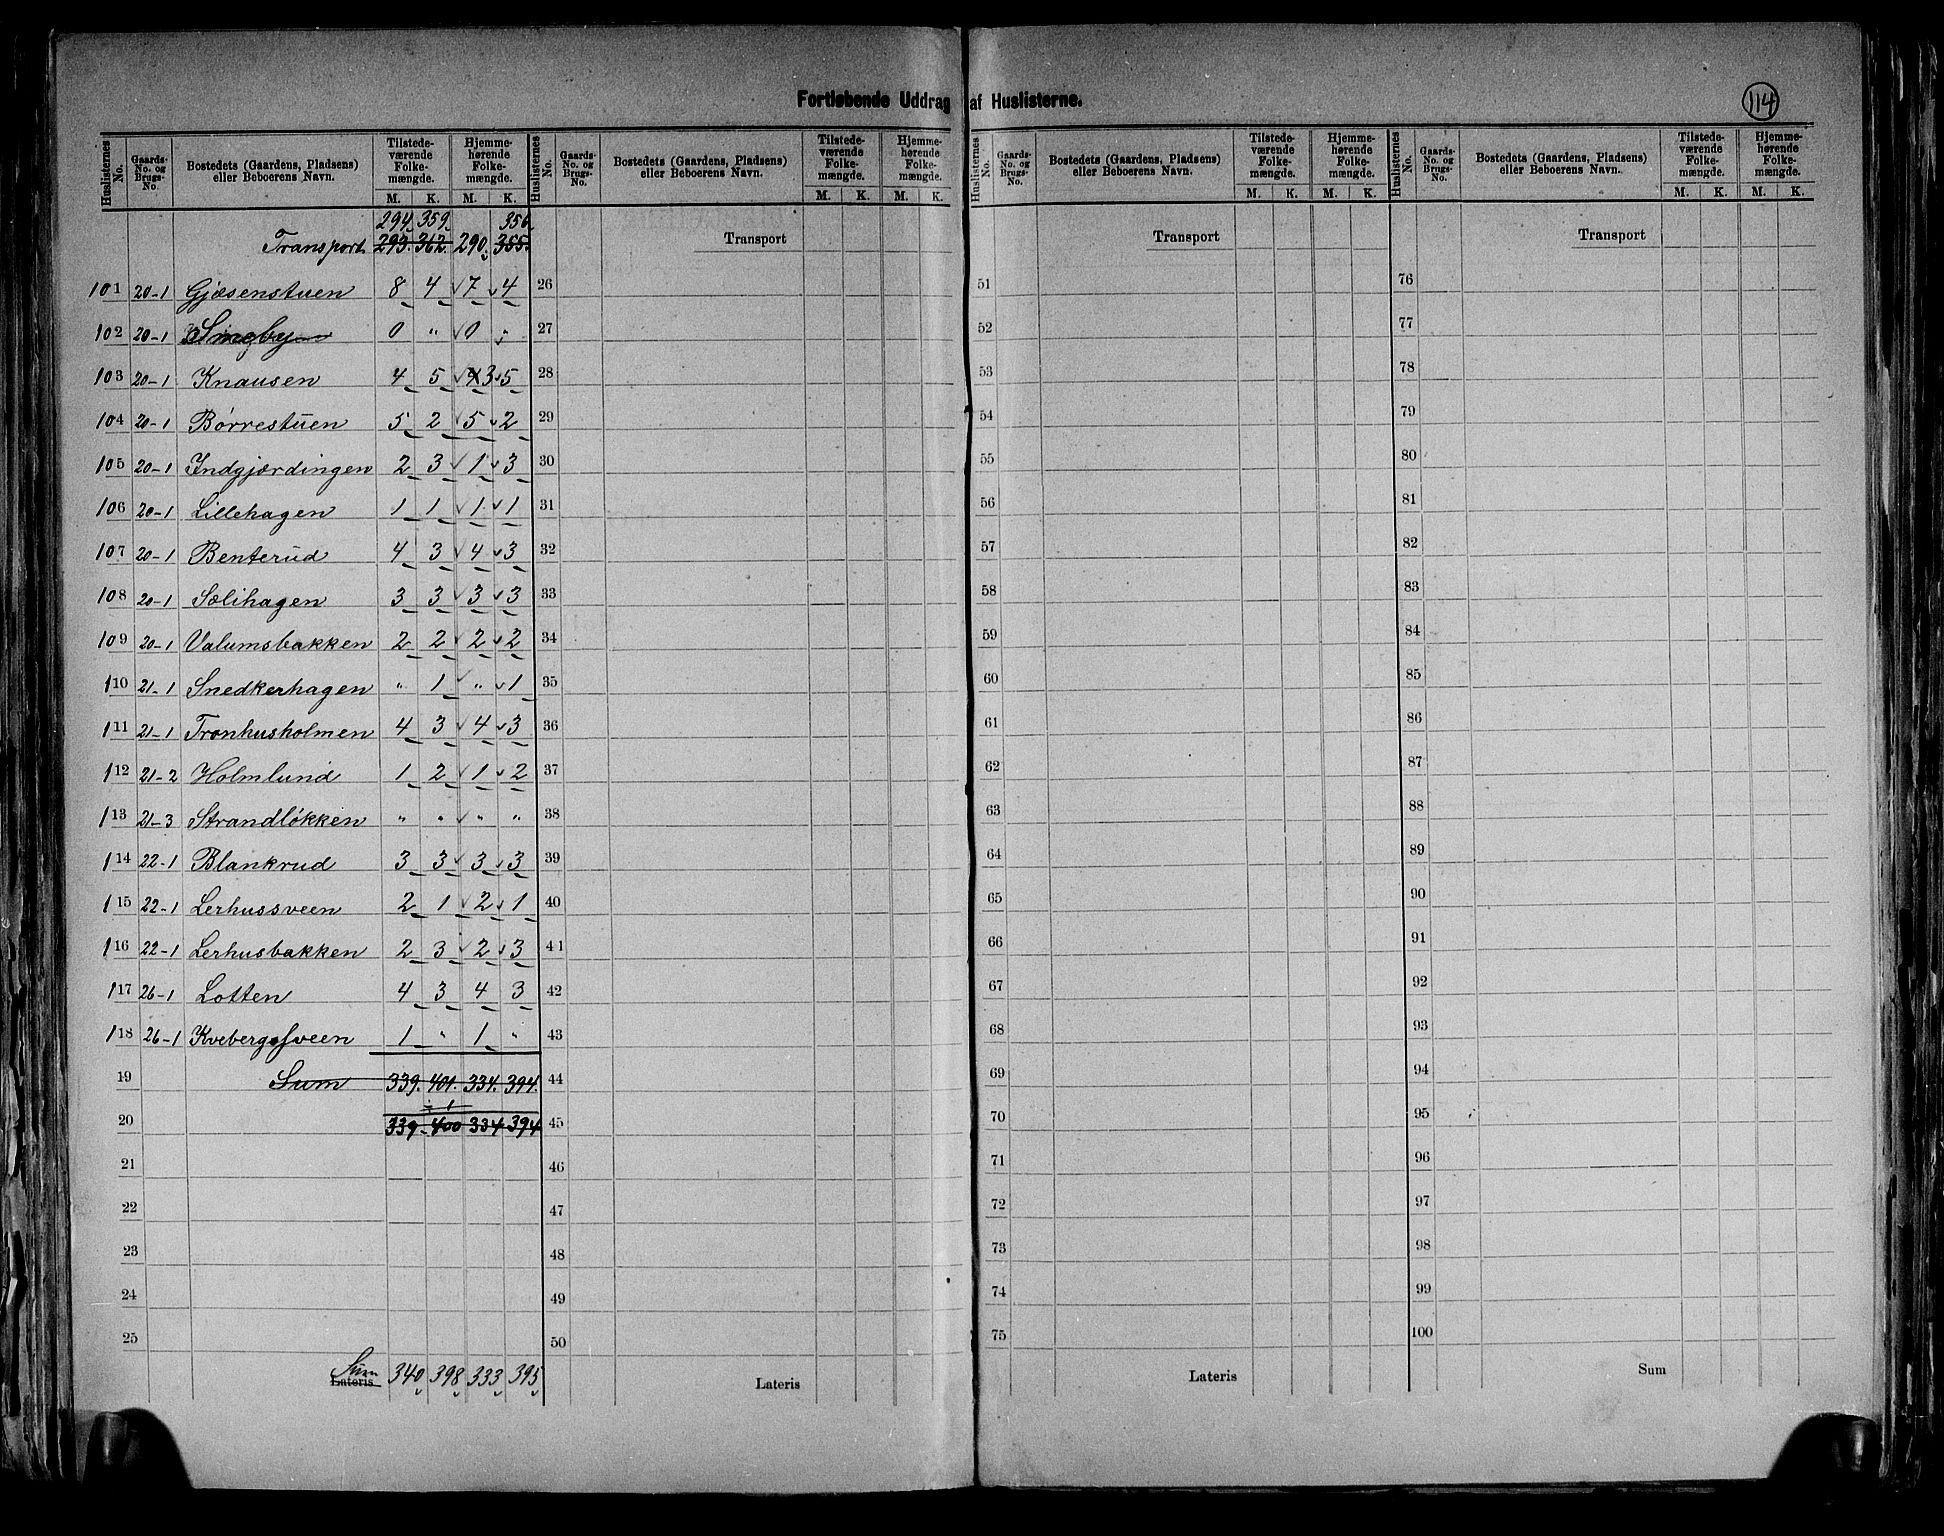 Fortløbende Uddrag af Huslisterne.
114
Huslisternes No. Gaards-No. og Brugs-No. Bostedets (Gaardens, Pladsens) eller Beboerens Navn. Tilstede-værende Folke-mængde. M. K. Hjemme-hørende Folke-mængde. M. K.
294. 359. 356.
Transport 293. 362. 290. 355.
101 20-1 Gjæsenstuen 8 4 7 4
102 20-1 0 " 0 "
103 20-1 Knausen 4 5 4 3 5
104 20-1 Børrestuen 5 2 5 2
105 20-1 Indgjærdingen 2 3 1 3
106 20-1 Lillehagen 1 1 1 1
107 20-1 Benterud 4 3 4 3
108 20-1 Sælihagen 3 3 3 3
109 20-1 Valumsbakken 2 2 2 2
110 21-1 Snedkerhagen " 1 " 1
111 21-1 Tronhusholmen 4 3 4 3
112 21-2 Holmlund 1 2 1 2
113 21-3 Strandløkken " " " "
114 22-1 Blankrud 3 3 3 3
115 22-1 Lerhussveen 2 1 2 1
116 22-1 Lerhusbakken 2 3 2 3
117 26-1 Lotten 4 3 4 3
118 26-1 Kvebergsveen 1 " 1 "
19 Sum 339. 401. 334. 394.
÷ 1
20 339. 400 334 394
21
22
23
24
25
Sum
Lateris 340 398 333 395
Huslisternes No. Gaards-No. og Brugs-No. Bostedets (Gaardens, Pladsens) eller Beboerens Navn. Tilstede-værende Folke-mængde. M. K. Hjemme-hørende Folke-mængde. M. K.
Transport
26
27
28
29
30
31
32
33
34
35
36
37
38
39
40
41
42
43
44
45
46
47
48
49
50
Lateris
Huslisternes No. Gaards-No. og Brugs-No. Bostedets (Gaardens, Pladsens) eller Beboerens Navn. Tilstede-værende Folke-mængde. M. K. Hjemme-hørende Folke-mængde. M. K.
Transport
51
52
53
54
55
56
57
58
59
60
61
62
63
64
65
66
67
68
69
70
71
72
73
74
75
Lateris
Huslisternes No. Gaards-No. og Brugs-No. Bostedets (Gaardens, Pladsens) eller Beboerens Navn. Tilstede-værende Folke-mængde. M. K. Hjemme-hørende Folke-mængde. M. K.
Transport
76
77
78
79
80
81
82
83
84
85
86
87
88
89
90
91
92
93
94
95
96
97
98
99
100
Sum